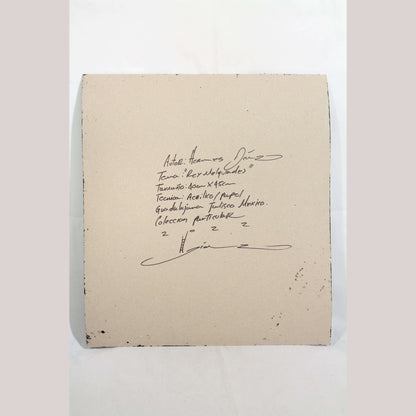 Autor: Hermes Díaz
Tema: "Rey Melquiades"
Tamaño: 40cm X 45cm
Tecnica: Acrilico/papel
Guadalajara Jalisco Mexico.
Coleccion particular
2 0 2 2